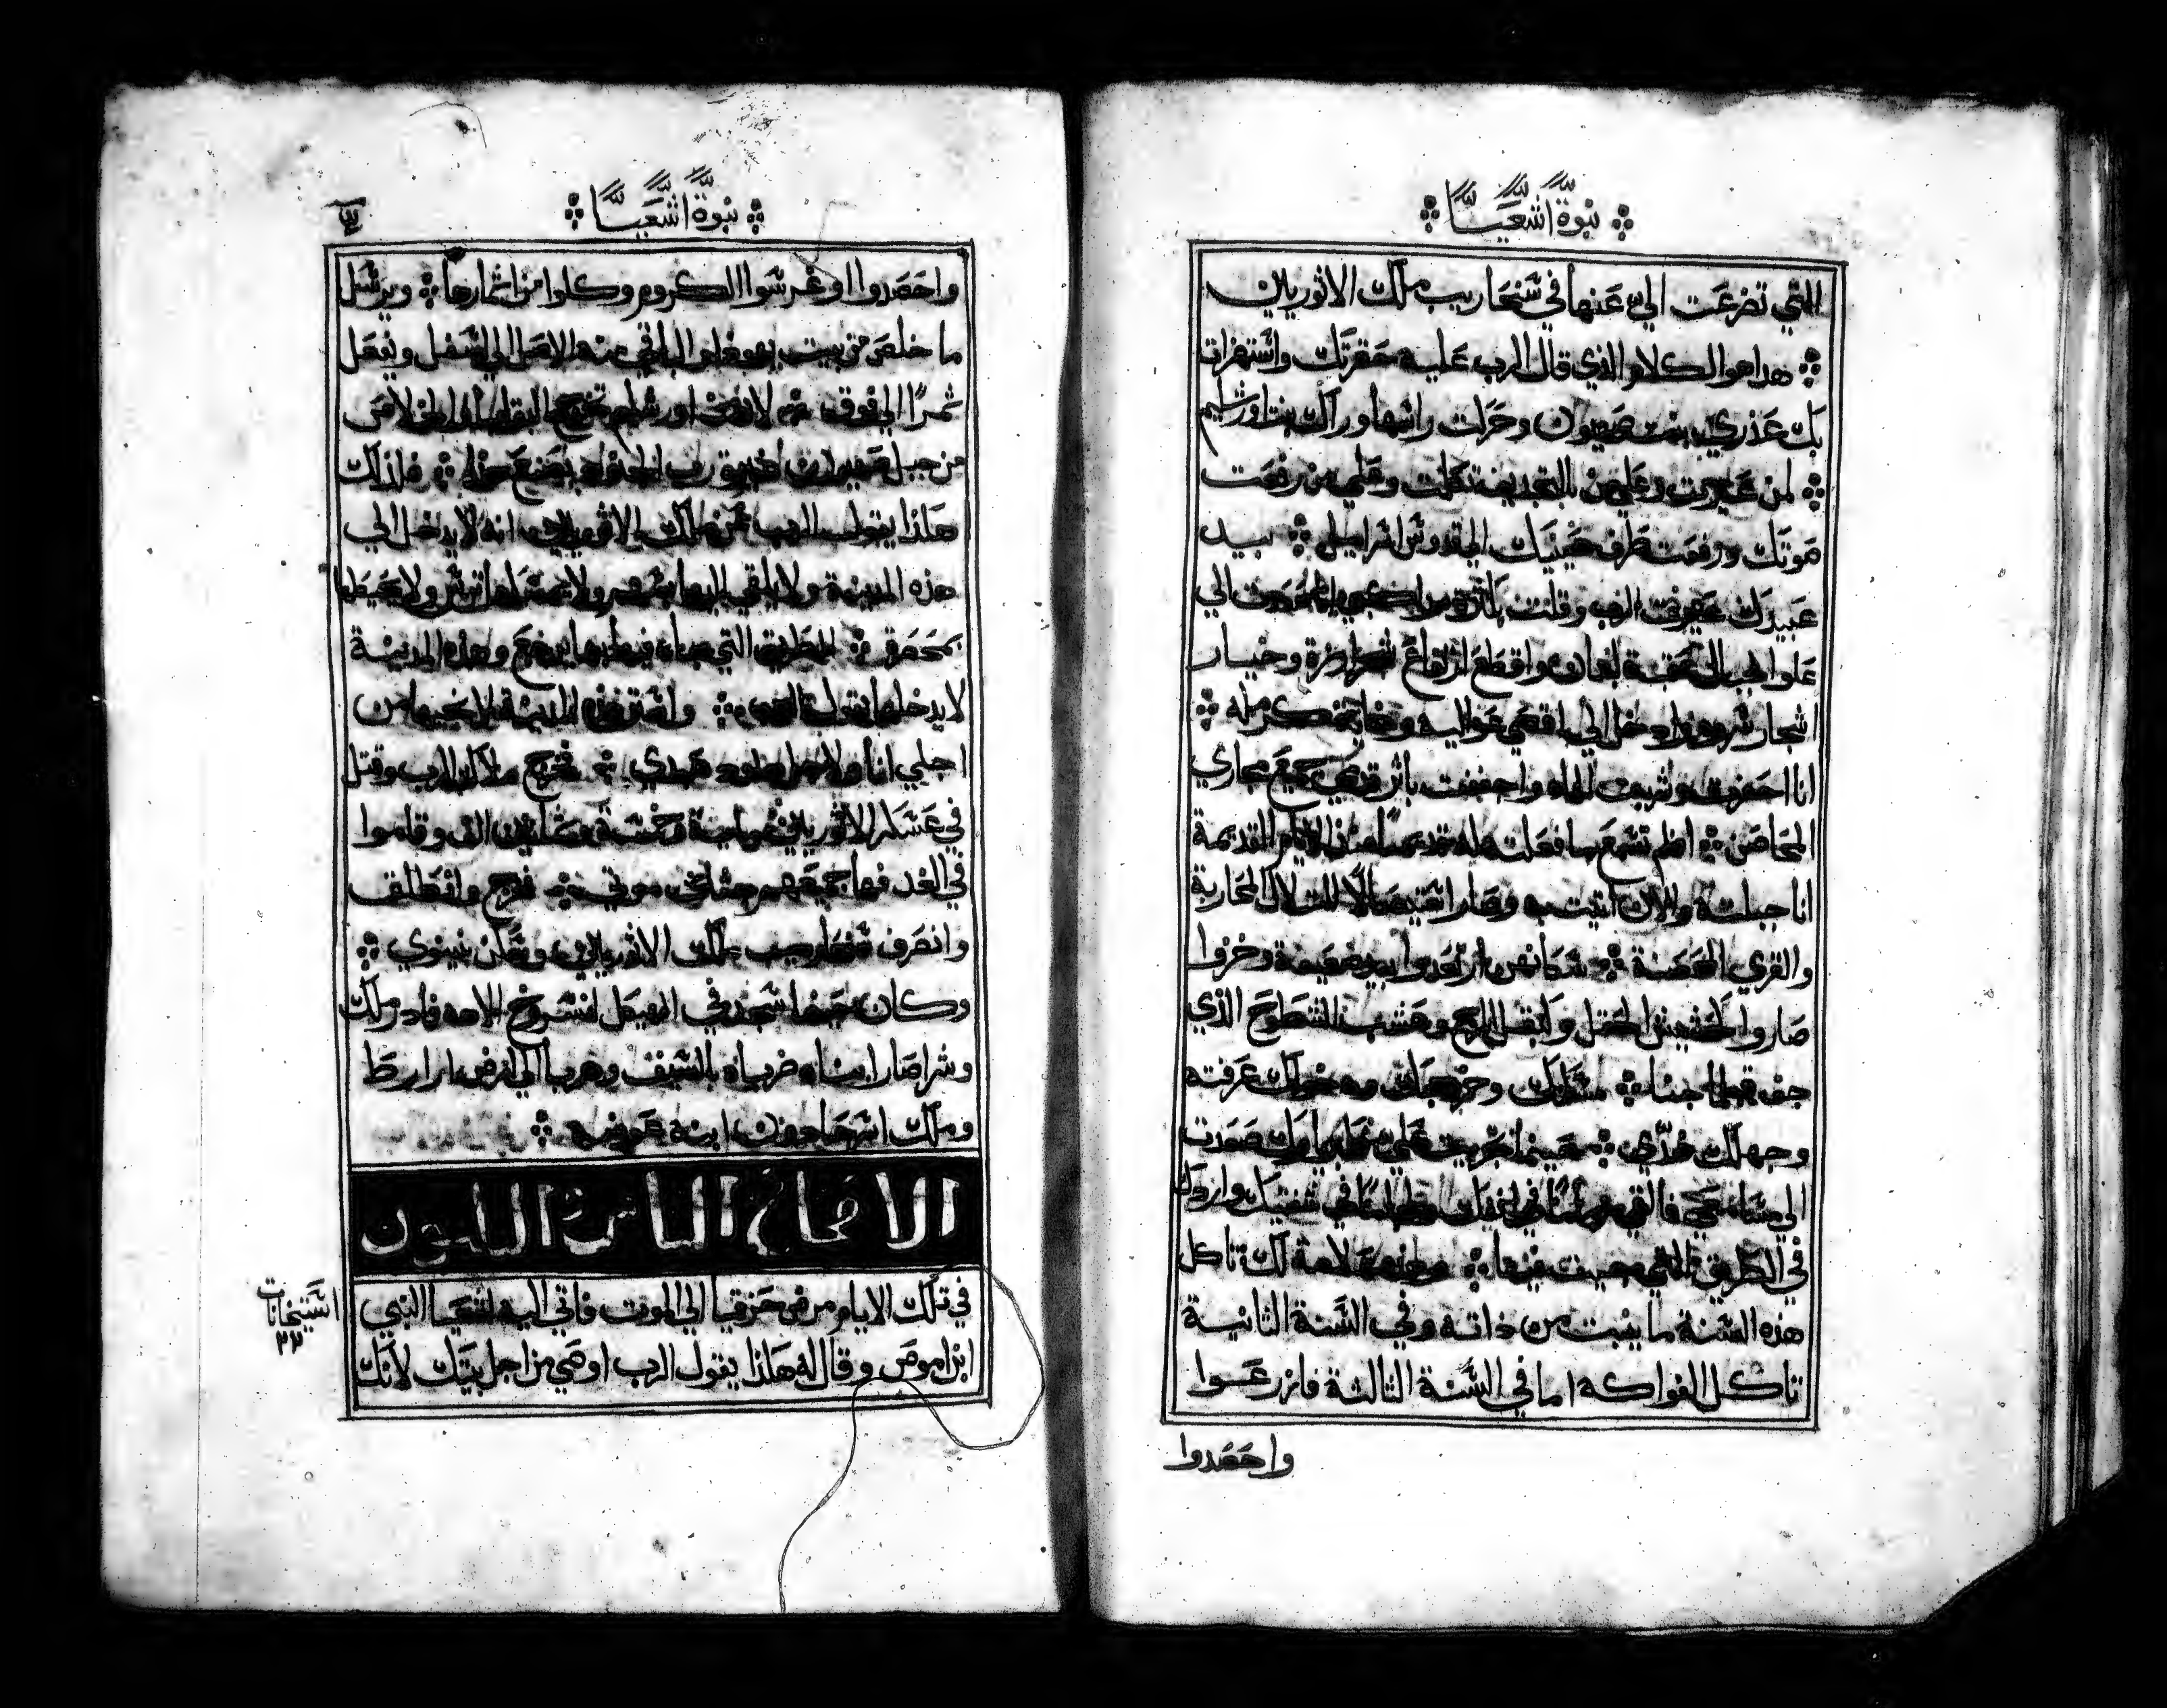 نبوة اشعيا
التي تضرعت الي عنها في سنحاريب ملك الاثوريين
هدا هو الكلام الذي قال الرب عليه حقرتك واستهزات
بك عذري بنت صهيون وحركت راسها وراك بنت اورشليم
لمن عيرت وعلي من بالتجديف تكلمت وعلي من رفعت
صوتك ورفعت طرف عينيك الي قدوس اسراييل بيد
عبيدك عيرت الرب وقلت
علو الجبال عقبة لبنان واقطع ارتفاع شجر ارزه وخيار
اشجار سروه وادخل الي اقصي عواليه
انا احفرت وشربت الماء واجففت باثر قدمي جميع مجاري
المحاصن الم تسمع ما فعلت له قديمًا منذ الايام القديمة
انا جبلته والان اتيت به وصار التلال المحاربة
والقري المحصنة سكانهن ارتعدوا وخزوا
صاروا كحشيش الحقل وكبقل المرج وعشب السطوح الذي
جف قبلما سكناك وخروجك ودخولك عرفته
وجهلك ضدي حينما علي صعدت
الي مسامعي في شفتيك واردك
في الطريق التي جيت فيها علامة لك تاكل
هذه السنة ما ينبت من ذاته وفي السنة الثانية
تاكل الفواكه اما في السنة الثالثة فازرعوا
واحصدوا
نبوة اشعيا
واحصدوا اوغرسوا الكروم وكلوا من اثمارها ويرسل
ما خلص من بيت يهوذا الباقي منه الاصل الي اسفل ويفعل
ثمرًا الي فوق لان من اورشليم تخرج البقايا والخلاص
من جبل صهيون رب الجنود يصنع هذا فلذلك
هكذا يقول الرب عن ملك الاثوريين انه لا يدخل الي
هذه المدينة ولا يلقي اليها سهم ولا يمسكها ترس ولا يحيطها
بمحصرة الطريق التي جاء فيها بها يرجع وهذه المدينة
لا يدخلها يقول الرب واستر هذه المدينة لانجيها من
اجلي انا ولاجل داوود عبدي فخرج ملاك الرب وقتل
في عسكر الاثوريين ماية وخمسة وثمانين الف وقاموا
في الغد فها جميعهم جثث موتي فخرج وانطلق
وانصرف سنحاريب ملك الاثوريين وسكن نينوي
وكان حينما سجد في الهيكل لنسروخ الاهه فادرملك
وشراصار ابناه ضرباه بالسيف وهربا الي ارض اراراط
وملك اسرحادون ابنه عوضه
الاصحاح الثامن والثلثون
في تلك الايام مرض حزقيا الي الموت فاتي اليه اشعيا النبي
ابن اموص وقال له هكذا يقول الرب اوصي من اجل بيتك لانك
استيخانات
٢٢